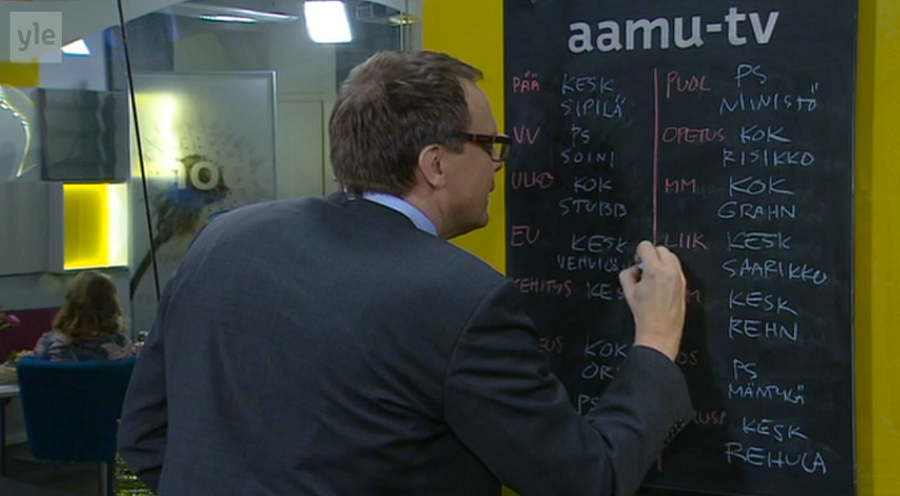 yle
aamu-tv
10
PÄÄ KESK
SIPILÄ
VV PS
SOINI
ULKO KOK
STUBB
EU KESK
KE
KOK
PS
PUOL PS
NIINISTÖ
OPETUS KOK
RISIKKO
MM KOK
GRAHN
LIIK KESK
SAARIKKO
KESK
REHN
PS
MÄNTYLÄ
KESK
REHULA